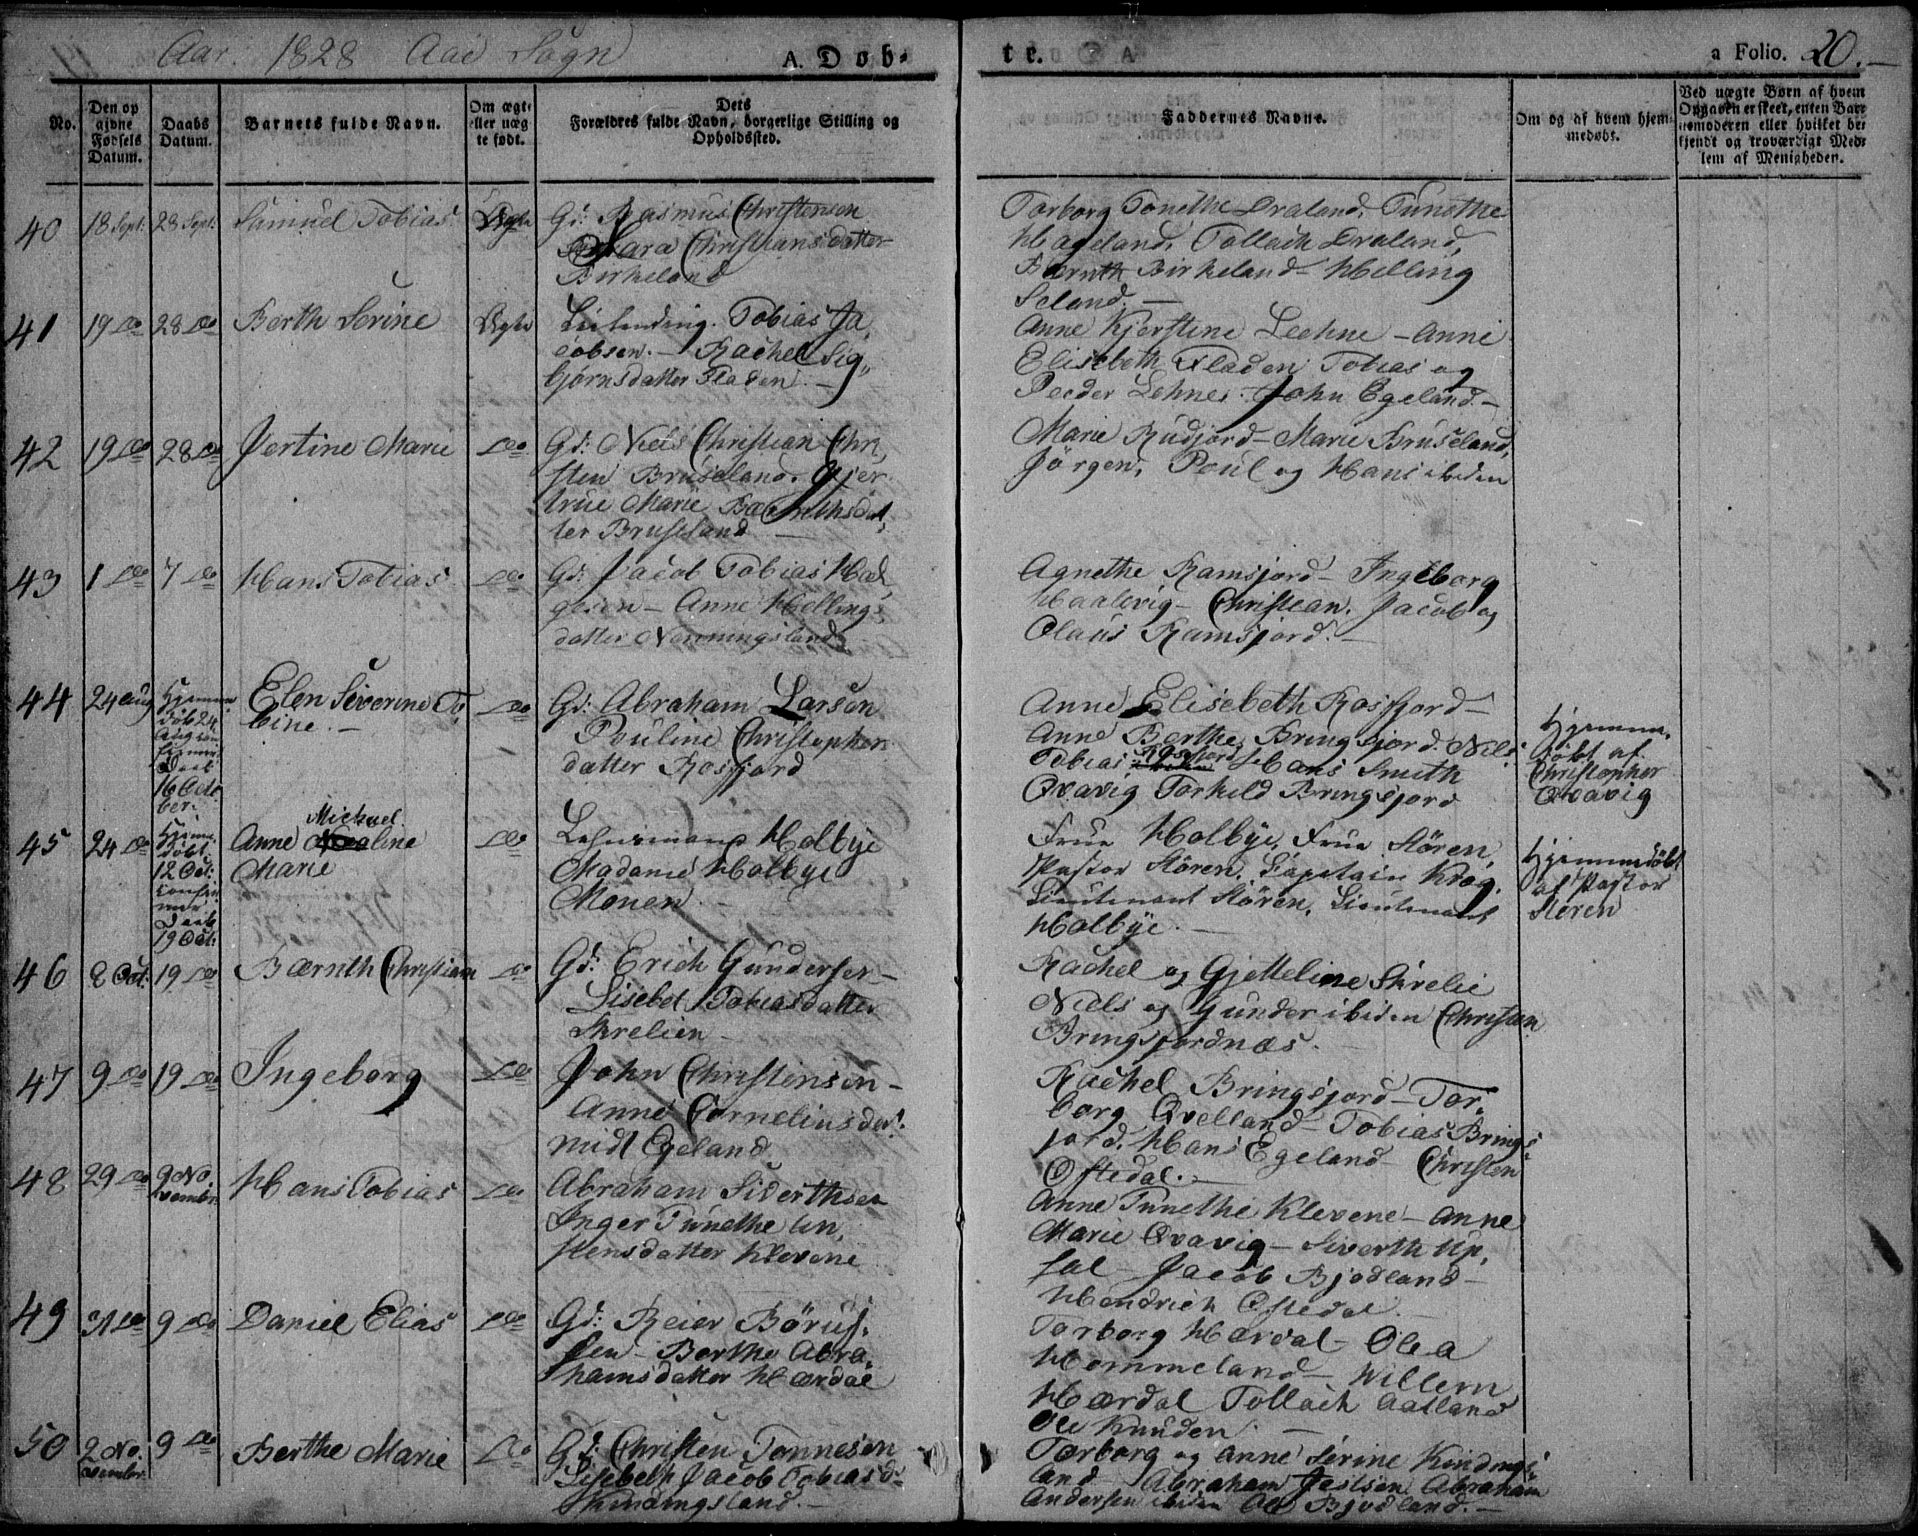 Aar. 1828 Aae Sogn
A. Døb-
te.
a Folio. 20.
No.
Den op
givne
Fødsels
Datum.
Daabs
Datum.
Barnets fulde Navn.
Om ægte
eller uæg
te født.
Dets
Forældres fulde Navn, borgerlige Stilling og
Opholdssted.
Faddernes Navne.
Om og af hvem hjem-
medøbt.
Ved uægte Børn af hvem
Opgaven er skeet, enten Bar-
nemoderen eller hvilket be-
kjendt og troværdigt Med-
lem af Menigheden.
40 18 Sept: 28 Sept: Samuel Tobias Ægte
Gd: Rasmus Christensen
Sara Christiansdatter
Birkeland
Torborg Tonethe Draland. Tunethe
Hageland. Tollach Draland,
Bærnth Birkeland Helling
Seland. —
41 19 do 28 do Berth Serine Ægte
Leilending. Tobias Ja
cobsen. — Rachel Sig„
bjørnsdatter Fladen. —
Anne Kjerstine Leehne — Anne
Elisebeth Fladen Tobias og
Peeder Lehne. John Egeland. —
42 19 do 28 do Jertine Marie do
Gd: Niels Christian Chri,
sten Bruseland. Gjer
true Marie Bærnthsdat,
ter Bruseland —
Marie Rudjord — Marie Bruseland,
Jörgen, Poul og Hans ibiden
43 1 do 7 do Hans Tobias do
Gd: Jacob Tobias Hel,
gesen — Anne Hellings
datter Nenningsland
Agnethe Ramsjord — Ingeborg
Haalevig — Christean. Jacob og
Olaus Ramsjord. —
44 24 Aug Hjemme
döb 24
Aug con
firmer
Daab
16 Octo
ber.
Elen Siverine To,
bine. — do
Gd: Abraham Larsen
Pouline Christopher
datter Rosfjord
Anne Elisebeth Rosfjord —
Anne Berthe, Bringsjord. Niels
Tobias Rosfjord Hans Smith
Qvavig Torkeld Bringsjord
Hjemme,
döbt af
Christopher
Qvavig
45 24 do Hjeme
döbt
12 Oct:
confir
mer
Daab
19 Oct:
Michael
Anne line
Marie do
Lehnsmand Holbye
Madame Holbye
Monen. —
Frue Holbye, Frue Stören,
Pastor Stören. Capitain Krog.
Lieutenant Stören. Lieutenant
Holbye. —
Hjemmedöbt
af Pastor
Stören
46 8 Oct: 19 do Bærnth Christian do
Gd: Erich Gundersen —
Lisebet Tobiasdatter
Skreliein —
Rachel og Gjetteline Skrelie
Niels og Gunder ibiden Christen
Bringsjordnæs. —
47 9 do 19 do Ingeborg do
John Christensen —
Anne Cornelius der:
midt Egeland
Rachel Bringsjord — Tor„
borg Qvelland — Tobias Brings
jord. Hans Egeland — Christen
Oftedal. —
48 29 do 9 No,
vembr. Hans Tobias do
Abraham Siverthsen
Inger Tunethe
stensdatter Klevene
Anne Tunethe Klevene — Anne
Marie Qvavig — Siverth Up,
sal — Jacob Bjodland —
Hendrich Oftedal —
49 31 do 9 do Daniel Elias do
Gd: Reier Börus,
sen — Berthe Abra„
hamsdatter Hærdal
Torborg Hærdal — Olea
Hommeland — Willem
Hærdal Tollach Aatland
Ole Knuden —
50 2 No
vembr. 9 do Berthe Marie do
Gd: Christen Tonnesen
Lisebeth Jacob Tobiasdr
Kindingsland. —
Torborg og Anne Serine Kindings
land — Abraham Jensen Abraham
Andersen ibiden Ole Bjodland. —